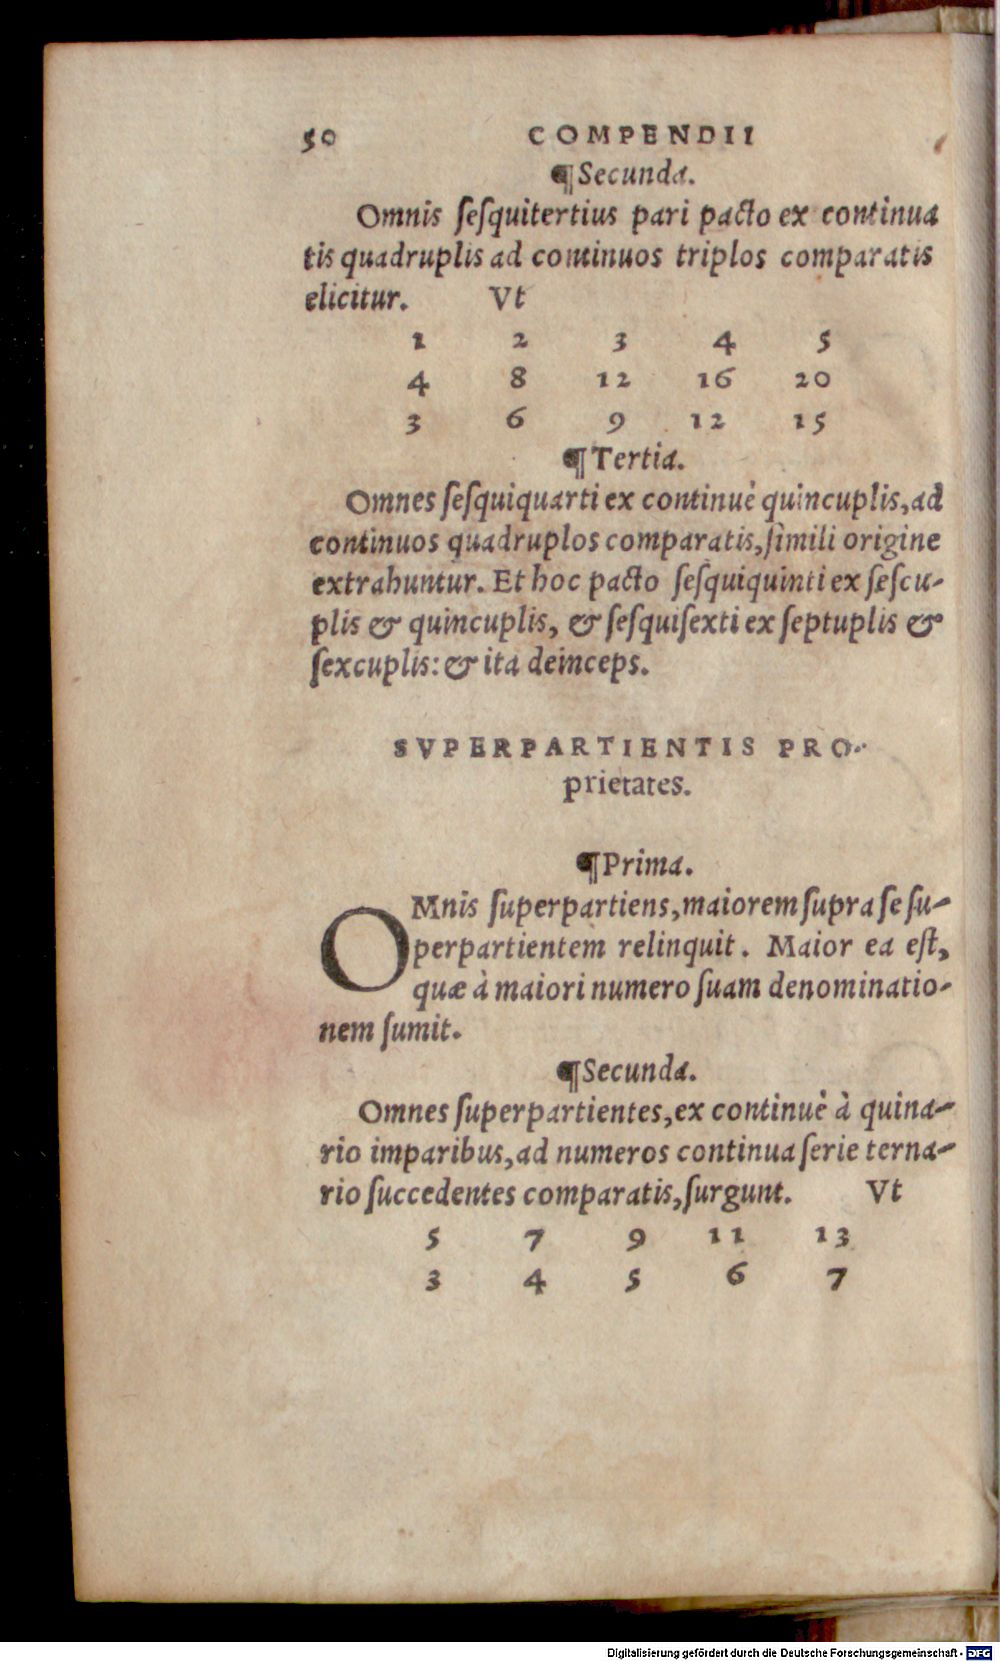 50 COMPENDII
¶Secunda.
Omnis ſeſquitertius pari pacto ex continua
tis quadruplis ad continuos triplos comparatis
elicitur. Vt
1 2 3 4 5
4 8 12 16 20
3 6 9 12 15
¶Tertia.
Omnes ſeſquiquarti ex continuè quincuplis, ad
continuos quadruplos comparatis, ſimili origine
extrahuntur. Et hoc pacto ſeſquiquinti ex ſeſcu-
plis & quincuplis, & ſeſquiſexti ex ſeptuplis &
ſexcuplis: & ita deinceps.
SVPERPARTIENTIS PRO-
prietates.
¶Prima.
OMnis ſuperpartiens, maiorem ſupra ſe ſu-
perpartientem relinquit. Maior ea eſt,
quæ à maiori numero ſuam denominatio-
nem ſumit.
¶Secunda.
Omnes ſuperpartientes, ex continuè à quina-
rio imparibus, ad numeros continua ſerie terna-
rio ſuccedentes comparatis, ſurgunt. Vt
5 7 9 11 13
3 4 5 6 7
Digitalisierung gefördert durch die Deutsche Forschungsgemeinschaft - DFG